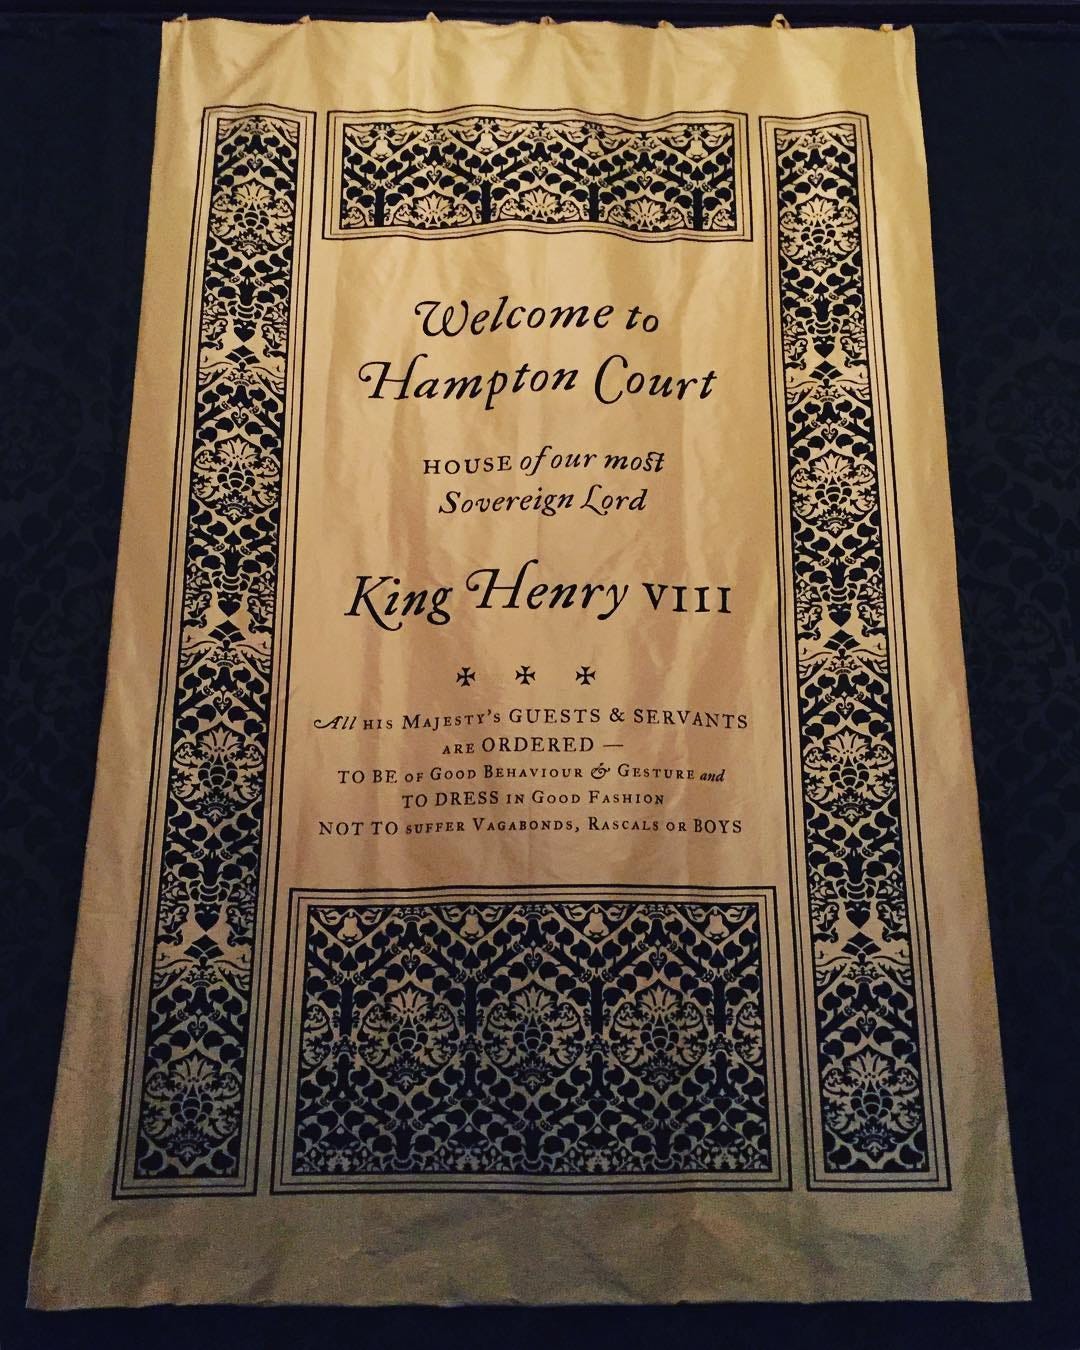 Welcome to
Hampton Court
HOUSE of our most
Sovereign Lord
King Henry VIII
✠ ✠ ✠
All HIS MAJESTY'S GUESTS & SERVANTS
ARE ORDERED —
TO BE OF GOOD BEHAVIOUR & GESTURE and
TO DRESS IN GOOD FASHION
NOT TO SUFFER VAGABONDS, RASCALS OR BOYS